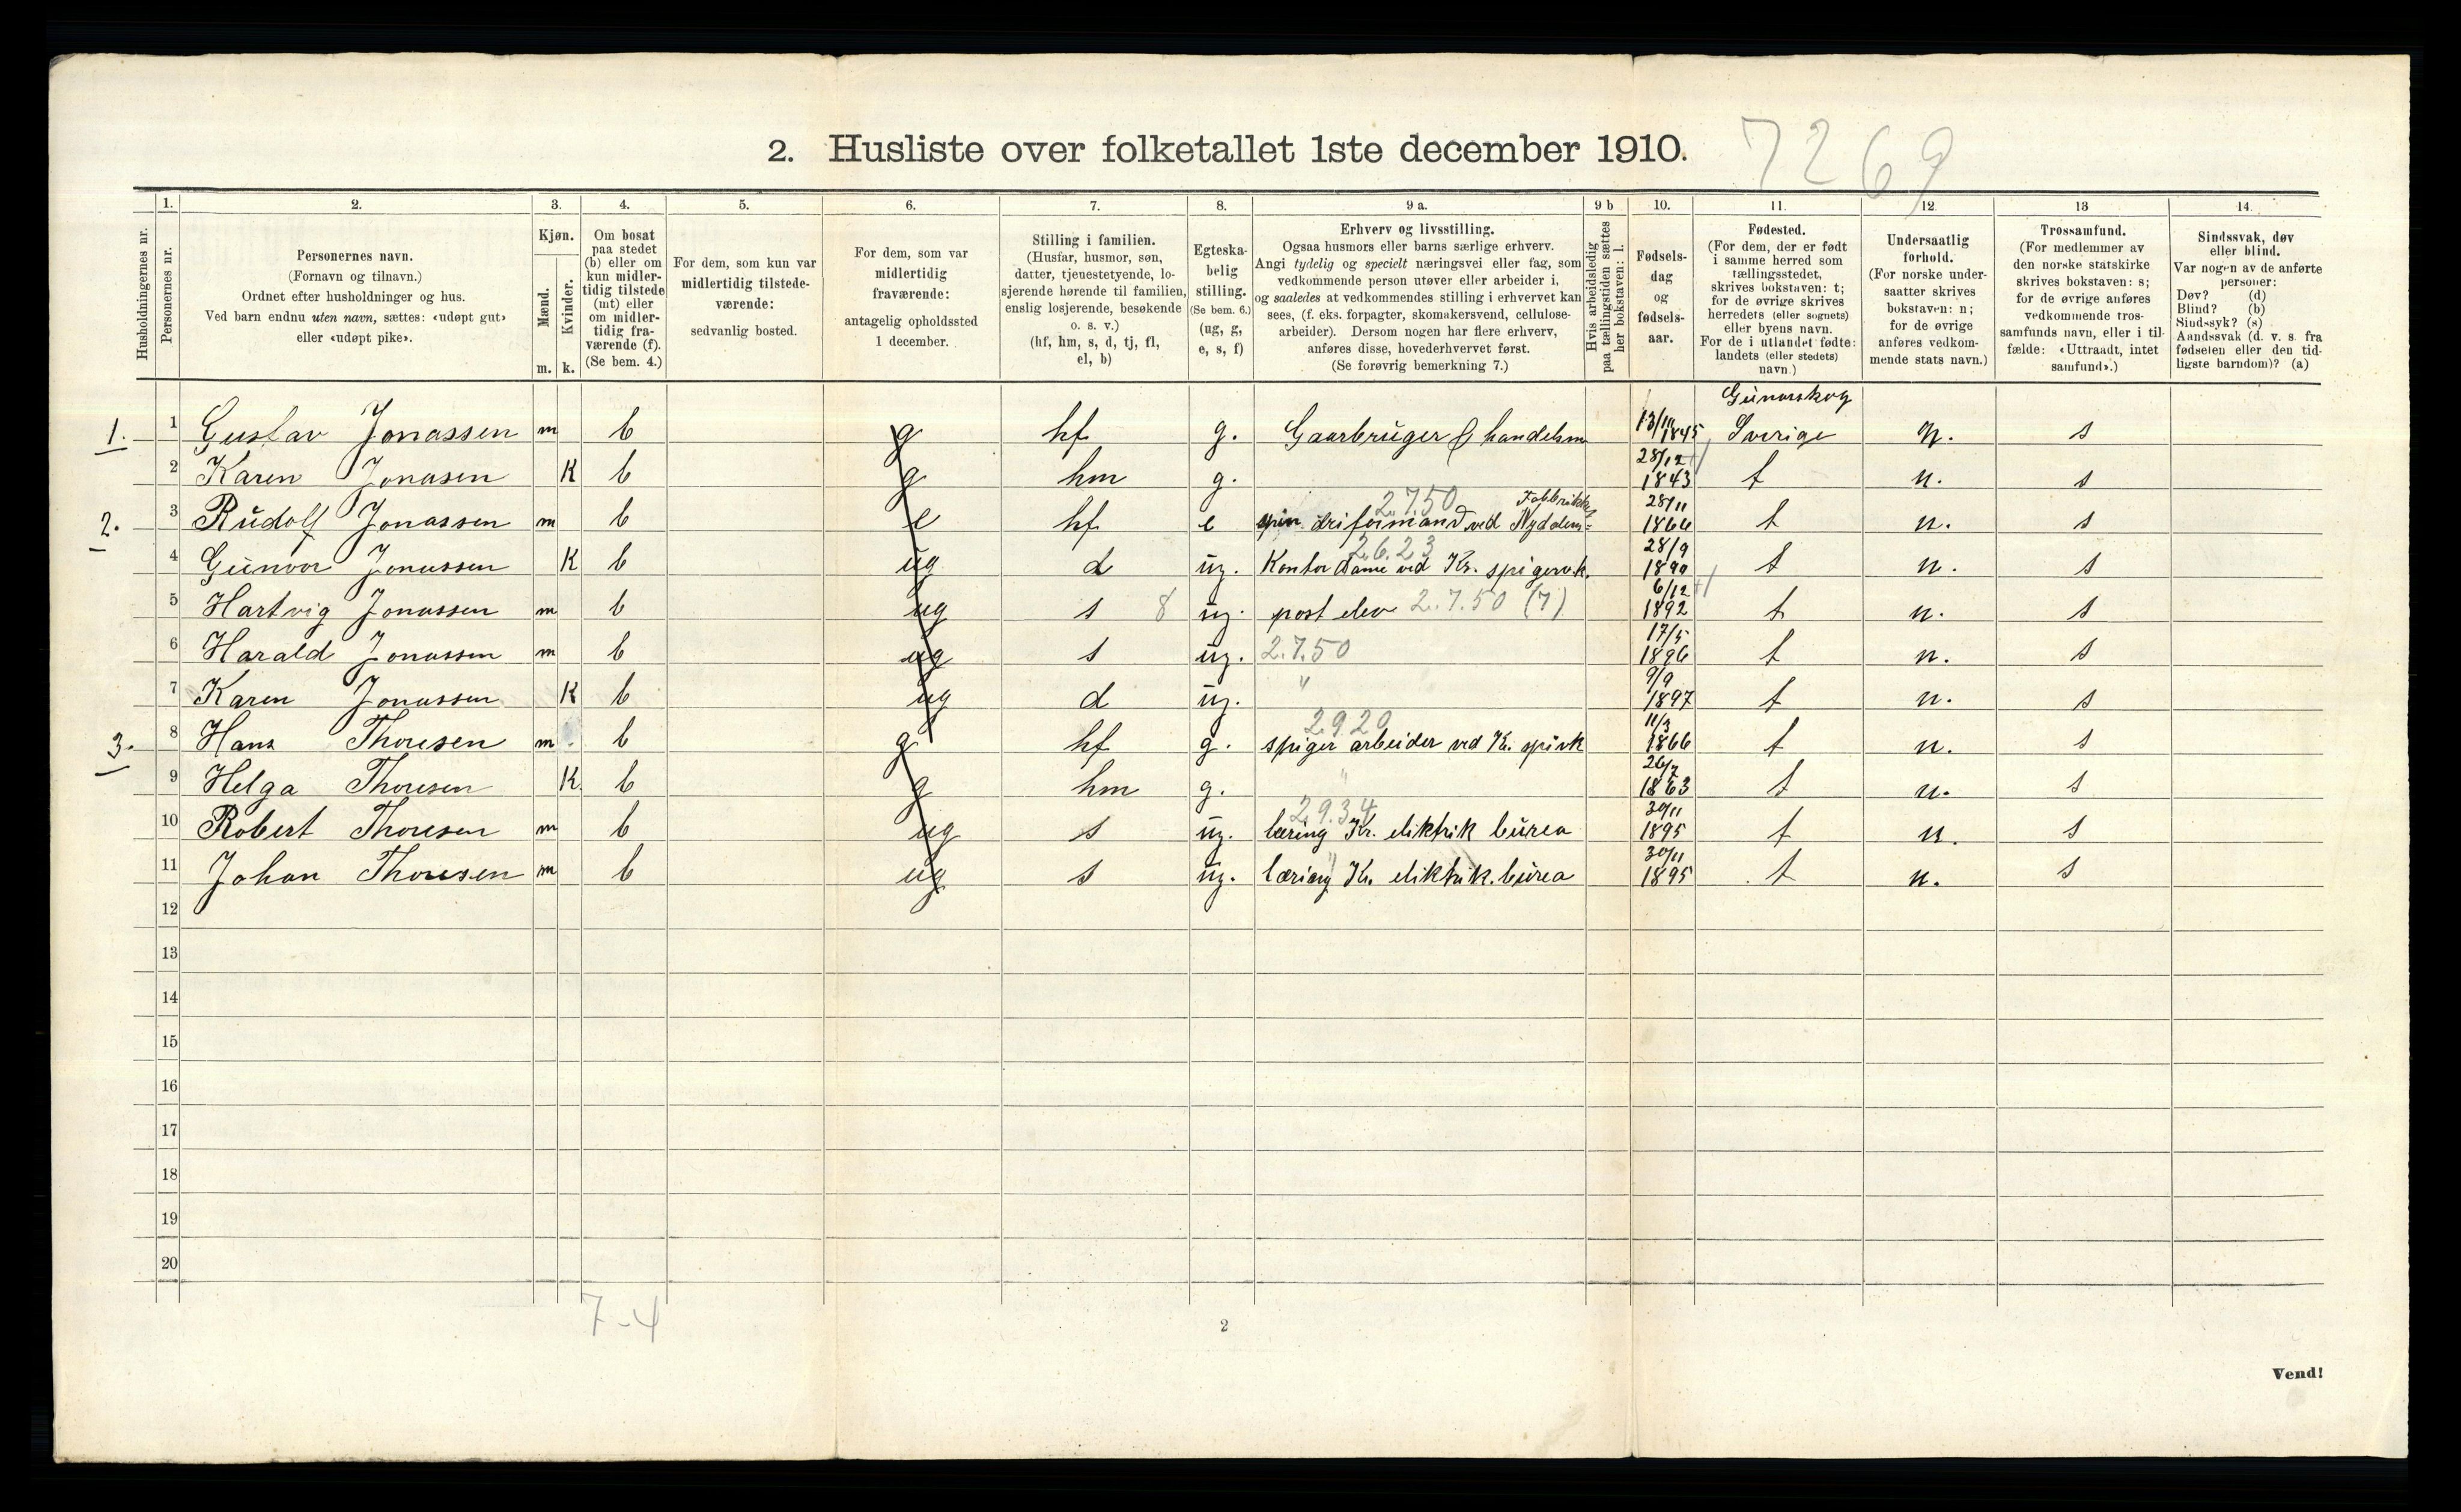 2. Husliste over folketallet 1ste december 1910.
7269
Husholdningernes nr.
1.
Personernes nr.
2.
Personernes navn.
(Fornavn og tilnavn.)
Ordnet efter husholdninger og hus.
Ved barn endnu uten navn, sættes: «udøpt gut»
eller «udøpt pike».
3.
Kjøn.
Mænd.
Kvinder.
m. k.
4.
Om bosat
paa stedet
(b) eller om
kun midler-
tidig tilstede
(mt) eller
om midler-
tidig fra-
værende (f).
(Se bem. 4.)
5.
For dem, som kun var
midlertidig tilstede-
værende:
sedvanlig bosted.
6.
For dem, som var
midlertidig
fraværende:
antagelig opholdssted
1 december.
7.
Stilling i familien.
(Husfar, husmor, søn,
datter, tjenestetyende, lo-
sjerende hørende til familien,
enslig losjerende, besøkende
o. s. v.)
(hf, hm, s, d, tj, fl,
el, b)
8.
Egteska-
belig
stilling.
(Se bem. 6.)
(ug, g,
e, s, f)
9 a.
Erhverv og livsstilling.
Ogsaa husmors eller barns særlige erhverv.
Angi tydelig og specielt næringsvei eller fag, som
vedkommende person utøver eller arbeider i,
og saaledes at vedkommendes stilling i erhvervet kan
sees, (f. eks. forpagter, skomakersvend, cellulose-
arbeider). Dersom nogen har flere erhverv,
anføres disse, hovederhvervet først.
(Se forøvrig bemerkning 7.)
9 b
Hvis arbeidsledig
paa tællingstiden sættes
her bokstaven: l.
10.
Fødsels-
dag
og
fødsels-
aar.
11.
Fødested.
(For dem, der er født
i samme herred som
tællingsstedet,
skrives bokstaven: t;
for de øvrige skrives
herredets (eller sognets)
eller byens navn.
For de i utlandet fødte:
landets (eller stedets)
navn.)
12.
Undersaatlig
forhold.
(For norske under-
saatter skrives
bokstaven: n;
for de øvrige
anføres vedkom-
mende stats navn.)
13
Trossamfund.
(For medlemmer av
den norske statskirke
skrives bokstaven: s;
for de øvrige anføres
vedkommende tros-
samfunds navn, eller i til-
fælde: «Uttraadt, intet
samfund».)
14.
Sindssvak, døv
eller blind.
Var nogen av de anførte
personer:
Døv? (d)
Blind? (b)
Sindssyk? (s)
Aandssvak (d. v. s. fra
fødselen eller den tid-
ligste barndom)? (a)
Gunarskog
1. 1 Gustav Jonassen m b g hf g. Gaarbruger & handelsm 13/11 1845 Sverige n. s
2 Karen Jonasen K b g hm g. 28/12 1843 t n. s
2.7.50 Fabbrikk
2. 3 Rudolf Jonassen m b e hf e driformand ved Nydalens 28/11 1866 t n. s
2.6.23
4 Gunvor Jonassen K b ug d ug. Kontor dame ved Kr. spigervk. 28/9 1890 t n. s
5 Hartvig Jonassen m b ug s 8 ug. post elev 2.7.50 (7) 6/12 1892 t n. s
6 Harald Jonassen m b ug s ug. 2.7.50 17/5 1896 t n. s
7 Karen Jonassen K b ug d ug. " 9/9 1897 t n. s
2.9.20
3. 8 Hans Thoresen m b g hf g. spiger arbeider ved Kr. spivk 11/3 1866 t n. s
9 Helga Thoresen K b g hm g. " 26/7 1863 t n. s
2.9.34
10 Robert Thoresen m b ug s ug. læring Kr. eliktrik burea 30/11 1895 t n. s
11 Johan Thoresen m b ug s ug. læring Kr. eliktrik. burea 30/11 1895 t n. s
12
13
14
15
16
17
18
19
20
7-4
2
Vend!